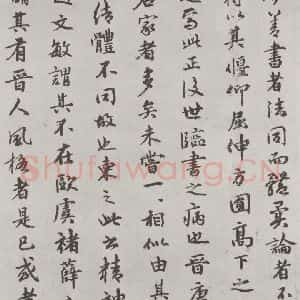 善書者法同而體異論者不
得以其偃仰屈伸方圓高下之
為此正後世臨書之病也晉唐
名家者多矣未嘗一一相似由其
結體不同故也東之此書精神
文敏謂其不在歐虞褚薛
謂其有晉人風格者是已或者
Shufawang.CN